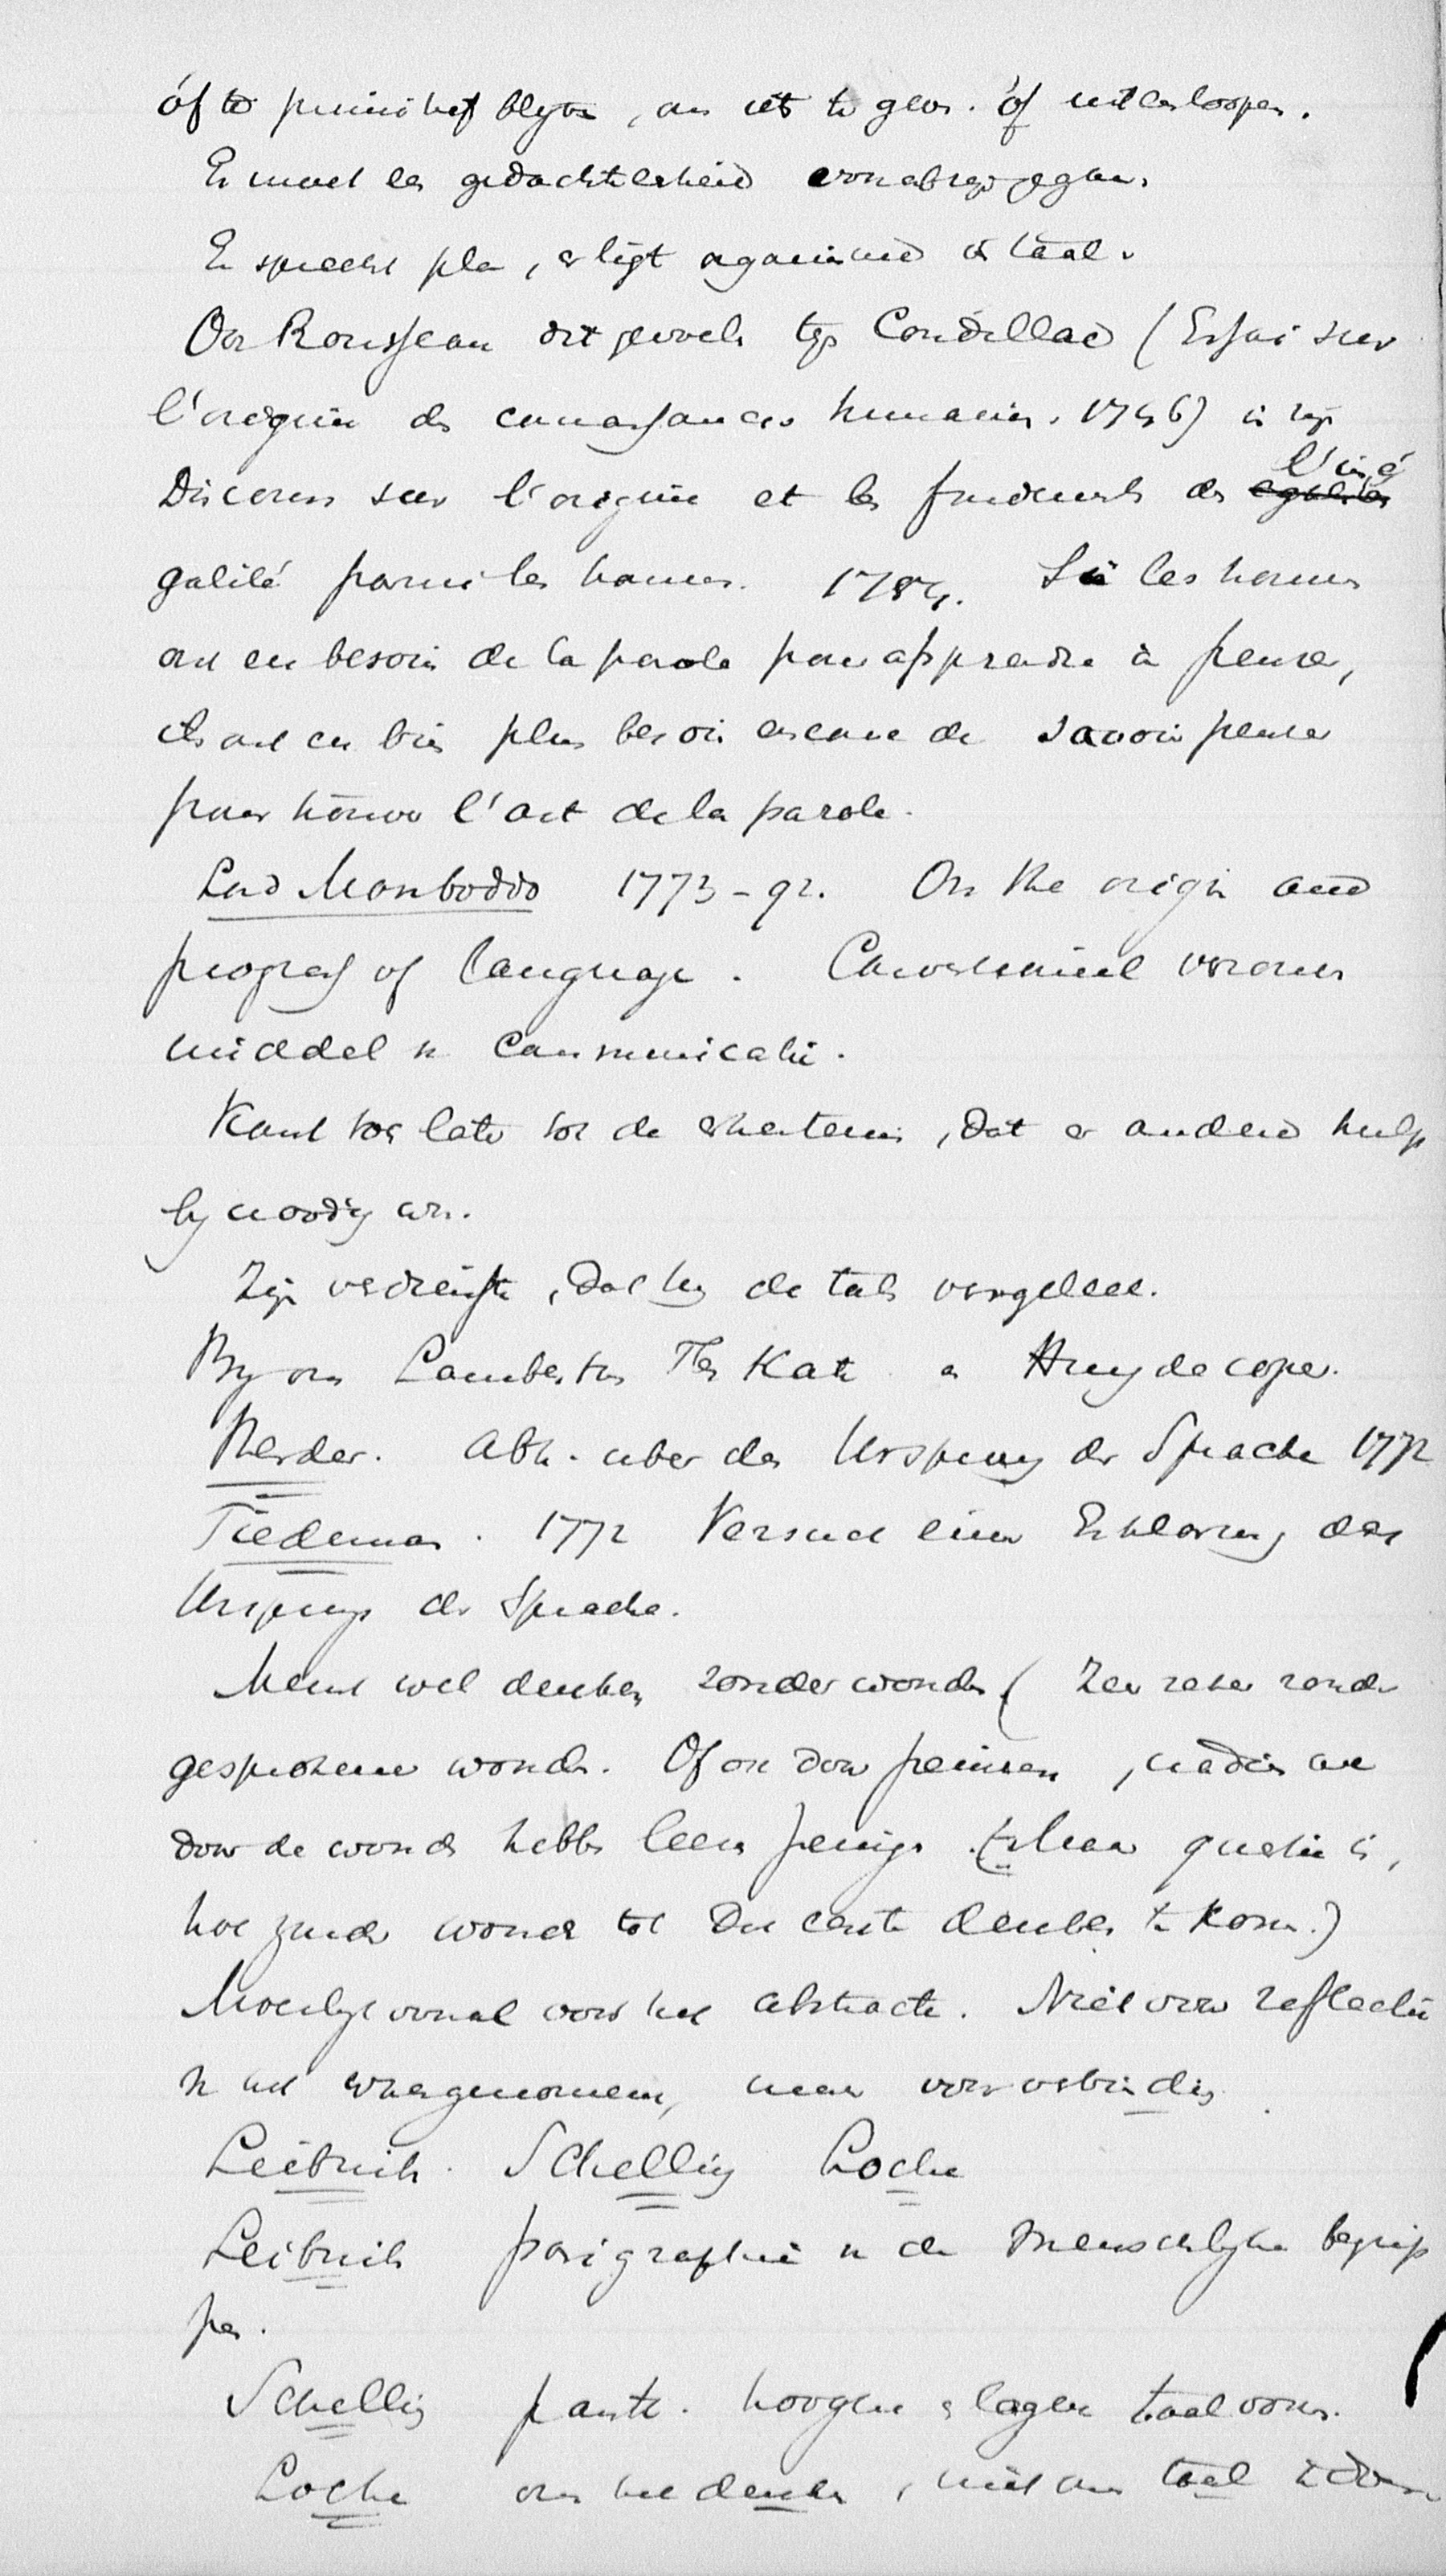 óf te primitief blyven, om iets te geven. óf uit een loopen.
Er moet een gedachtenheid vooraf zyn gegaan.
Er spreekt plan, er ligt organisme in taal.
Ook Rousseau dit gevoeld tegen Condillac (Essai sur
l'origine des connaissances humaines. 1746) in zyn
Discours sur l'origine et les fondements de l'iné
galité parmi les hommes. 1754. Si les hommes
ont eu besoin de la parole pour apprendre à penser,
ils ont eu bien plus besoin encore de savoir penser
pour trouver l'art de la parole.
Lord Monboddo 1773-92. On the origin and
progress of language.
middel v. Communicatie.
Komt toch later tot de erkentenis, dat er andere hulp
by noodig was.
Zyn verdienste, dat hy de talen vergeleek.
By ons Lambertus Ten Kate en Huydecoper.
Herder. Abh. uber den Ursprung der Sprache 1772
Tiedeman. 1772 Versuch einer Erklarung des
Ursprungs der Sprache.
Meent wel denken zonder woorden ( Zeer zeker zonder
gesproken woorden. Of ook door peinzen, nadien we
door de woorden hebben leeren peinzen. Maar quaestie is,
hoe zonder woorden tot dien eerste denken te komen.)
Moeilyk vooral voor het abstracte. Niet voor reflectie
v. het waargenomene, maar voor verbinding.
Leibnitz. Schelling Locke
Leibnitz pasigraphie v. de menschelyke begrip
pen.
Schelling panth. hoogere en lagere taalvorm.
Locke om het denken, niet om taal te doen